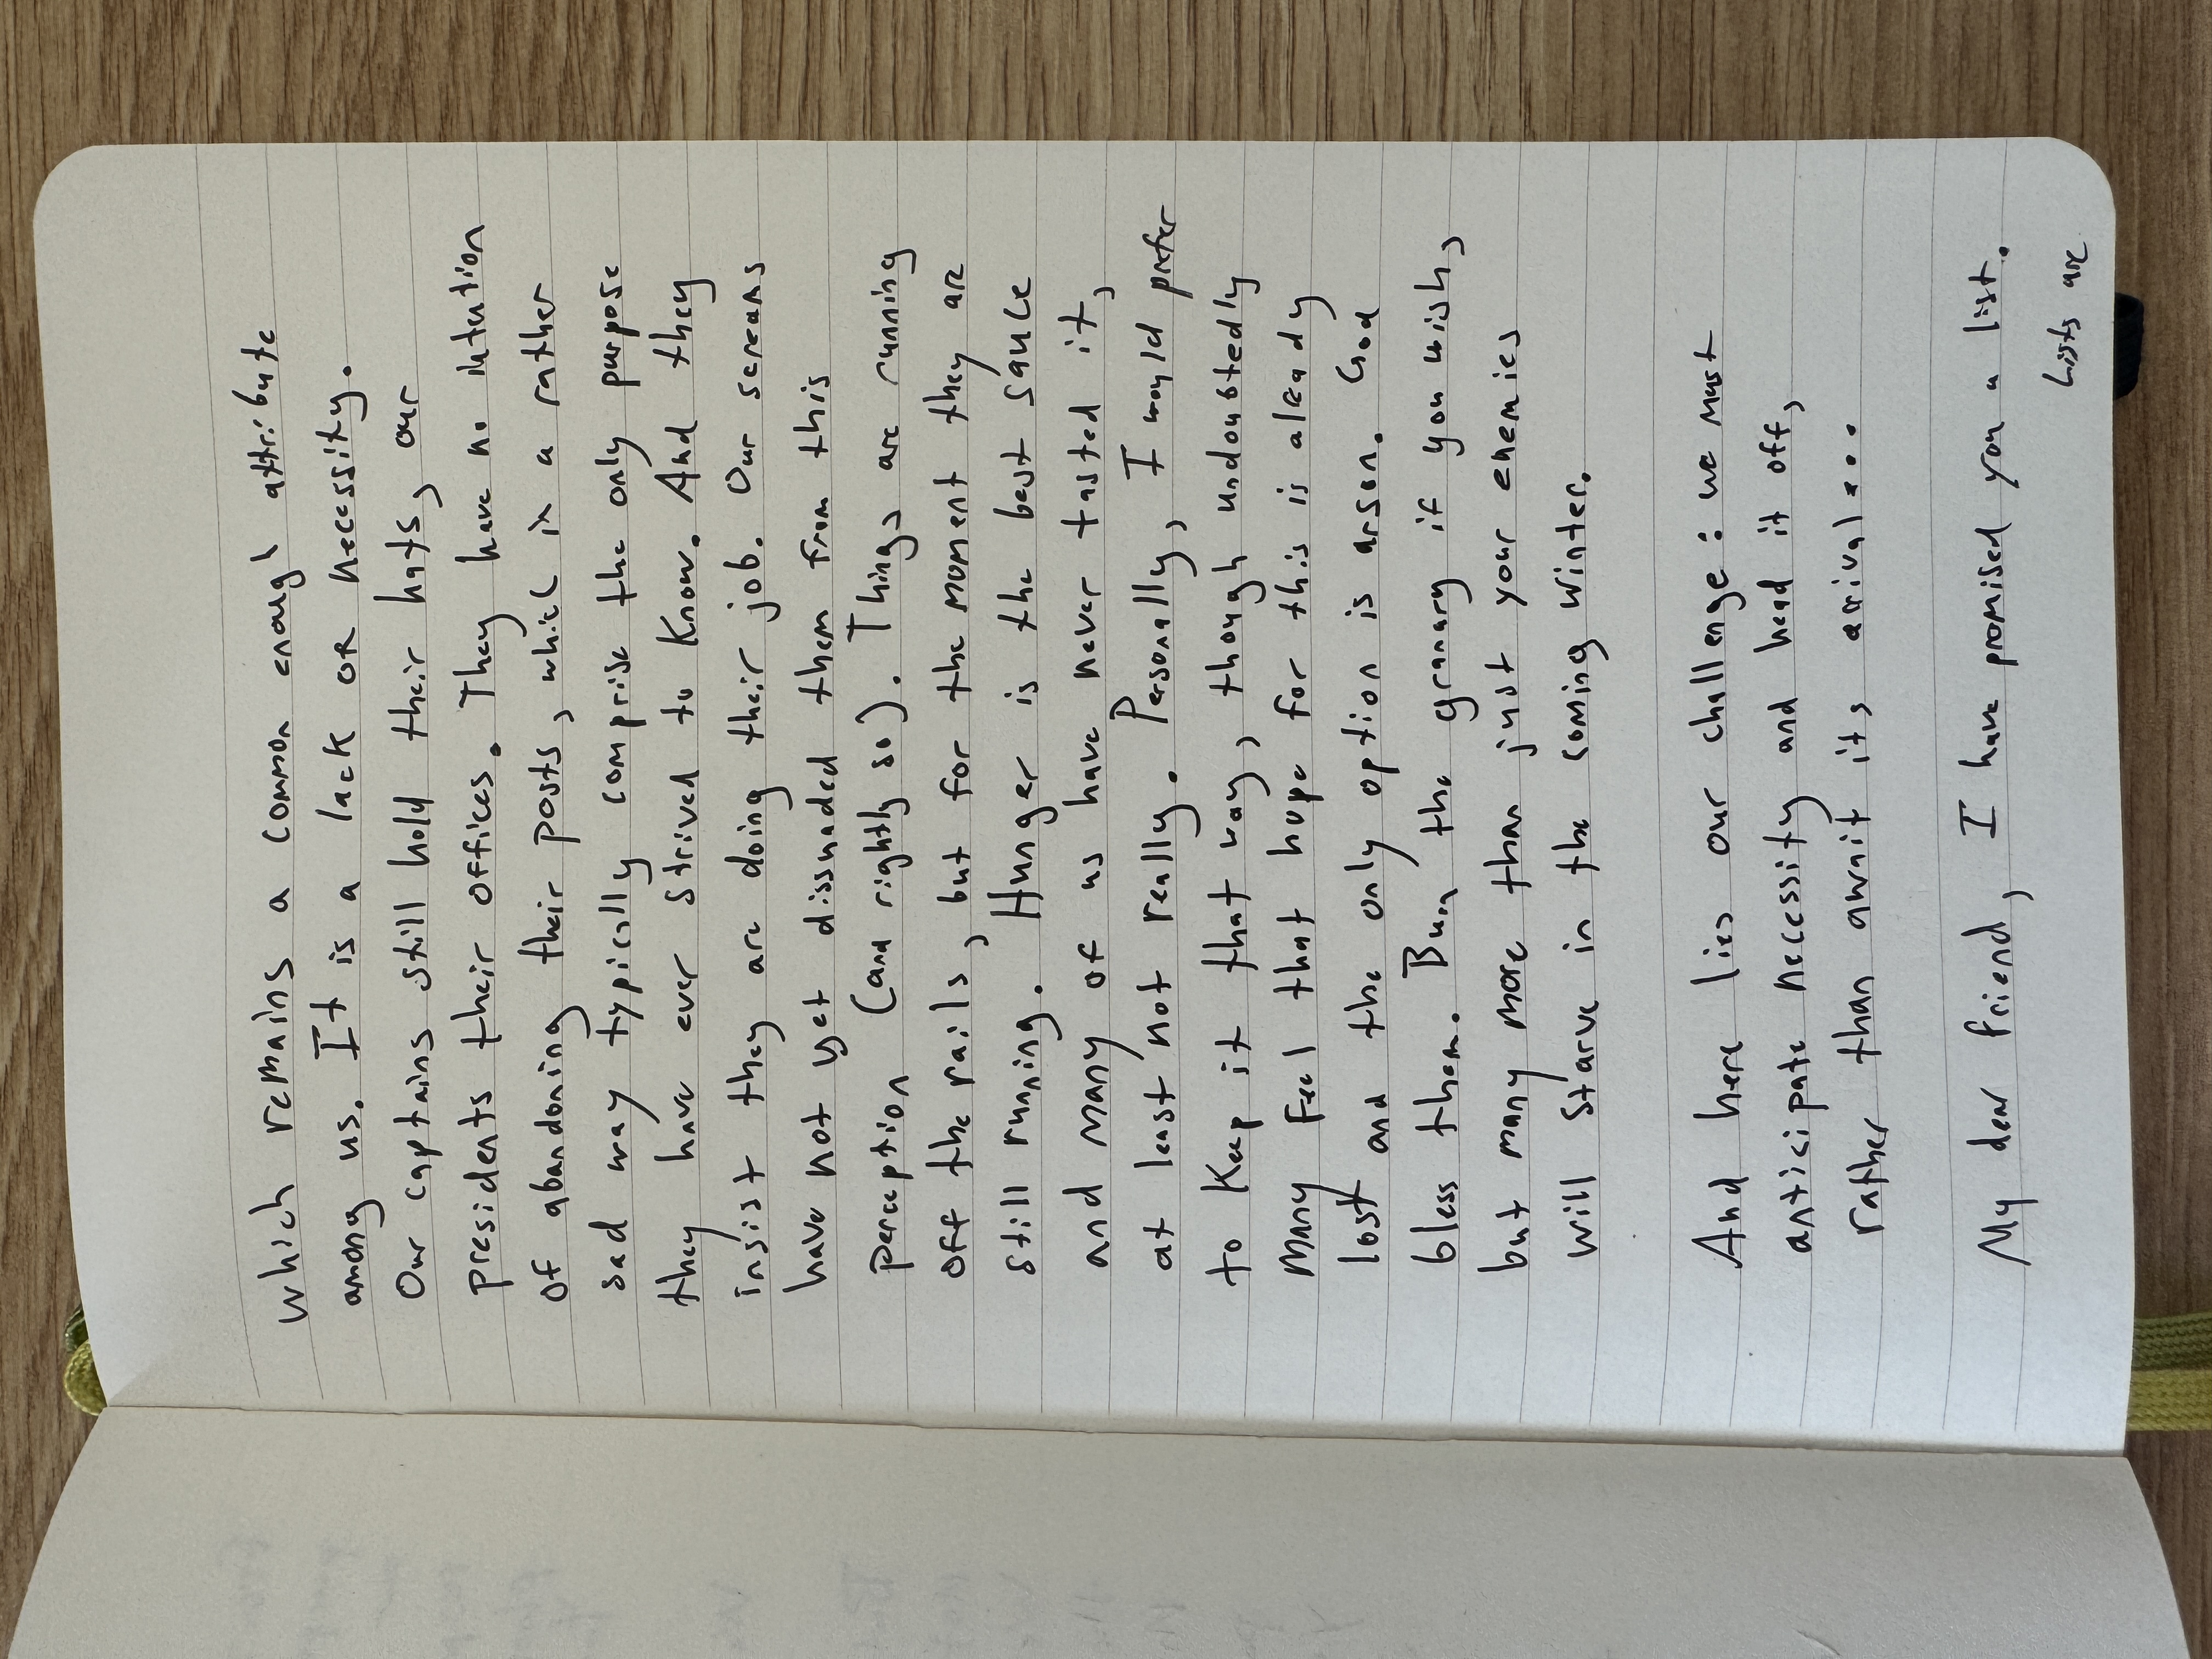 which remains a common enough attribute
among us. It is a lack of necessity.
Our captains still hold their hats, our
presidents their offices. They have no intention
of abandoning their posts, which in a rather
sad way typically comprise the only purpose
they have ever strived to know. And they
insist they are doing their job. Our screams
have not yet dissuaded them from this
perception (and rightly so). Things are running
off the rails, but for the moment they are
still running. Hunger is the best sauce
and many of us have never tasted it,
at least not really. Personally, I would prefer
to keep it that way, though undoubtedly
many feel that hope for this is already
lost and the only option is arson. God
bless them. Burn the granary if you wish,
but many more than just your enemies
will starve in the coming winter.
And here lies our challenge: we must
anticipate necessity and head it off,
rather than await its arrival...
My dear friend, I have promised you a list.
Lists are